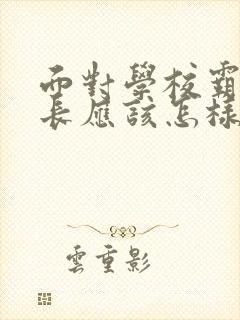 面對學校霸
長應該怎樣
雲重影